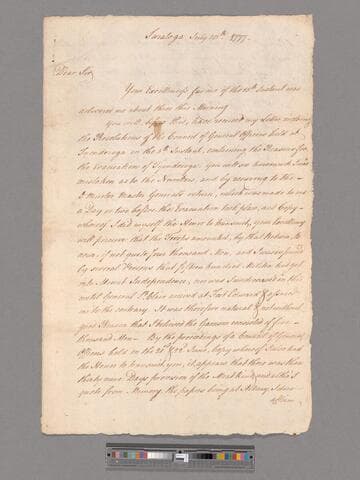 Saratoga July 26th 1777.
Dear Sir,
Your Excellency's favour of the 18th Instant was
delivered me about three this Morning
You will before this, have received my Letter inclosing
the Resolutions of the Council of General Officers held at
Ticonderoga on the 5th Instant, containing the Reasons for
the Evacuation of Ticonderoga. you will see how much I was
mistaken as to the Numbers, and by recurring to the
D: Muster Master Generals return, which was made to me
a Day or two before the Evacuation took place, and Copy
whereof I did myself the Honor to transmit, your Excellency
will perceive that the Troops amounted, by that Return, to
near, if not quite four thousand Men, and
by several Persons that Hundred Militia had got
into Mount Independence, nor was I undeceived in this
until General St Clair arrived at Fort Edward & assured
me to the contrary. It was therefore natural &
give Reason that I believed the Garrison consisted of five
thousand Men – By the proceedings of a Council of General
Officers held on the 20th Copy whereof I also had
the Honor to transmit you, it appears that there was then
Days provision of the Meat kind, and altho I
quote from Memory, the papers being at Albany, I dare